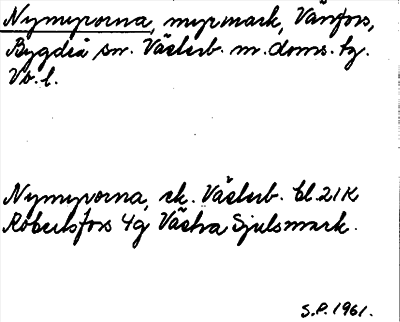 Nymyrorna, myrmark, Vänfors,
Bygdeå sn. Västerb. m. doms. tg.
Vb. l.
Nymyrorna, ek. Västerb. bl. 21K
Robertsfors 4g Västra Sjulsmark.
S.P. 1961.